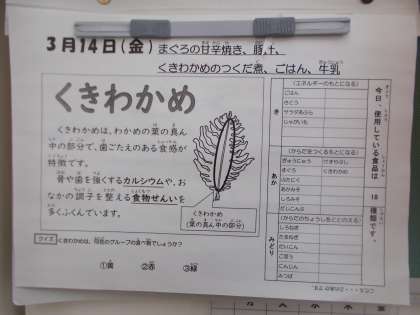 3月14日(金) まぐろの甘辛焼き、豚汁、
くきわかめのつくだ煮、ごはん、牛乳
くきわかめ
くきわかめは、わかめの葉の真ん
中の部分で、歯ごたえのある食感が
特徴です。
骨や歯を強くするカルシウムや、お
なかの調子を整える食物せんいを
多くふくんでいます。
くきわかめ
(葉の真ん中の部分)
クイズ くきわかめは、何色のグループの食べ物でしょうか？
①黄 ②赤 ③緑
今日、使用している食品は 18 種類です。
き
(エネルギーのもとになる)
ごはん
さとう
サラダあぶら
じゃがいも
あか
(からだをつくるもとになる)
ぎゅうにゅう
まぐろ くきわかめ
ぶたにく
あかみそ
しろみそ
だいこんぶ
みどり
(からだのちょうしをととのえる)
しろねぎ
たまねぎ
だいこん
ごぼう
にんじん
みつば